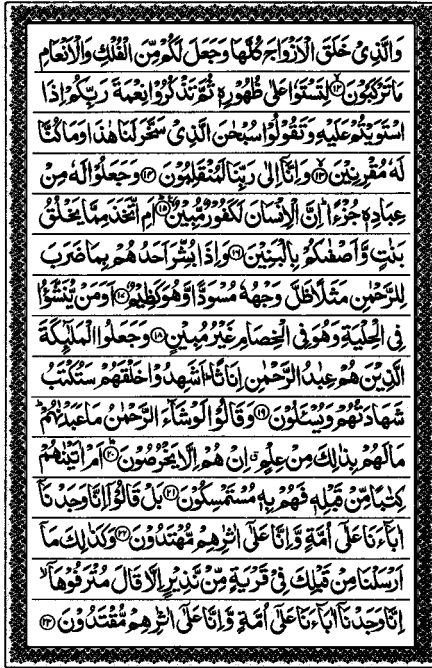 وَالَّذِىْ خَلَقَ الْاَزْوَاجَ كُلَّهَا وَجَعَلَ لَكُمْ مِّنَ الْفُلْكِ وَالْاَنْعَامِ
مَا تَرْكَبُوْنَ ۙ﴿۱۲﴾ لِتَسْتَوٗا عَلٰى ظُهُوْرِهٖ ثُمَّ تَذْكُرُوْا نِعْمَةَ رَبِّكُمْ اِذَا
اسْتَوَيْتُمْ عَلَيْهِ وَتَقُوْلُوْا سُبْحٰنَ الَّذِىْ سَخَّرَ لَنَا هٰذَا وَمَا كُنَّا
لَهٗ مُقْرِنِيْنَ ۙ﴿۱۳﴾ وَاِنَّاۤ اِلٰى رَبِّنَا لَمُنْقَلِبُوْنَ ﴿۱۴﴾ وَجَعَلُوْا لَهٗ مِنْ
عِبَادِهٖ جُزْءًا ؕ اِنَّ الْاِنْسَانَ لَكَفُوْرٌ مُّبِيْنٌ ؕ﴿۱۵﴾ اَمِ اتَّخَذَ مِمَّا يَخْلُقُ
بَنٰتٍ وَّاَصْفٰىكُمْ بِالْبَنِيْنَ ﴿۱۶﴾ وَاِذَا بُشِّرَ اَحَدُهُمْ بِمَا ضَرَبَ
لِلرَّحْمٰنِ مَثَلًا ظَلَّ وَجْهُهٗ مُسْوَدًّا وَّهُوَ كَظِيْمٌ ﴿۱۷﴾ اَوَمَنْ يُّنَشَّؤُا
فِى الْحِلْيَةِ وَهُوَ فِى الْخِصَامِ غَيْرُ مُبِيْنٍ ﴿۱۸﴾ وَجَعَلُوا الْمَلٰٓئِكَةَ
الَّذِيْنَ هُمْ عِبٰدُ الرَّحْمٰنِ اِنَاثًا ؕ اَشَهِدُوْا خَلْقَهُمْ ؕ سَتُكْتَبُ
شَهَادَتُهُمْ وَيُسْـَٔلُوْنَ ﴿۱۹﴾ وَقَالُوْا لَوْ شَآءَ الرَّحْمٰنُ مَا عَبَدْنٰهُمْ ؕ
مَا لَهُمْ بِذٰلِكَ مِنْ عِلْمٍ ۗ اِنْ هُمْ اِلَّا يَخْرُصُوْنَ ؕ﴿۲۰﴾ اَمْ اٰتَيْنٰهُمْ
كِتٰبًا مِّنْ قَبْلِهٖ فَهُمْ بِهٖ مُسْتَمْسِكُوْنَ ﴿۲۱﴾ بَلْ قَالُوْۤا اِنَّا وَجَدْنَاۤ
اٰبَآءَنَا عَلٰٓى اُمَّةٍ وَّاِنَّا عَلٰٓى اٰثٰرِهِمْ مُّهْتَدُوْنَ ﴿۲۲﴾ وَكَذٰلِكَ مَاۤ
اَرْسَلْنَا مِنْ قَبْلِكَ فِىْ قَرْيَةٍ مِّنْ نَّذِيْرٍ اِلَّا قَالَ مُتْرَفُوْهَاۤ ۙ
اِنَّا وَجَدْنَاۤ اٰبَآءَنَا عَلٰٓى اُمَّةٍ وَّاِنَّا عَلٰٓى اٰثٰرِهِمْ مُّقْتَدُوْنَ ﴿۲۳﴾